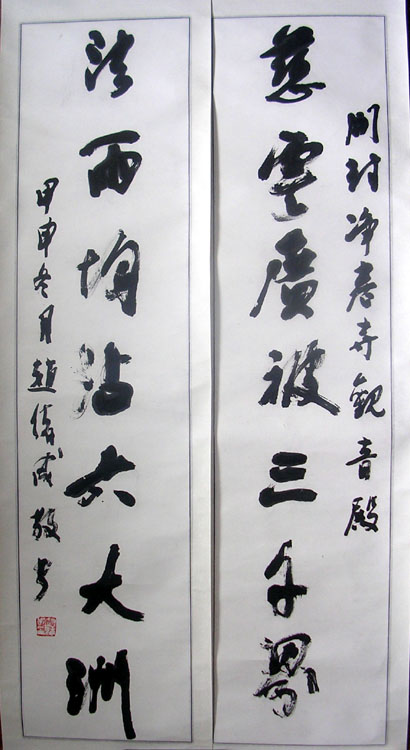 開封净寺觀音殿
慈雲廣被三千界
法雨均沾六大洲
甲申冬月趙敬書